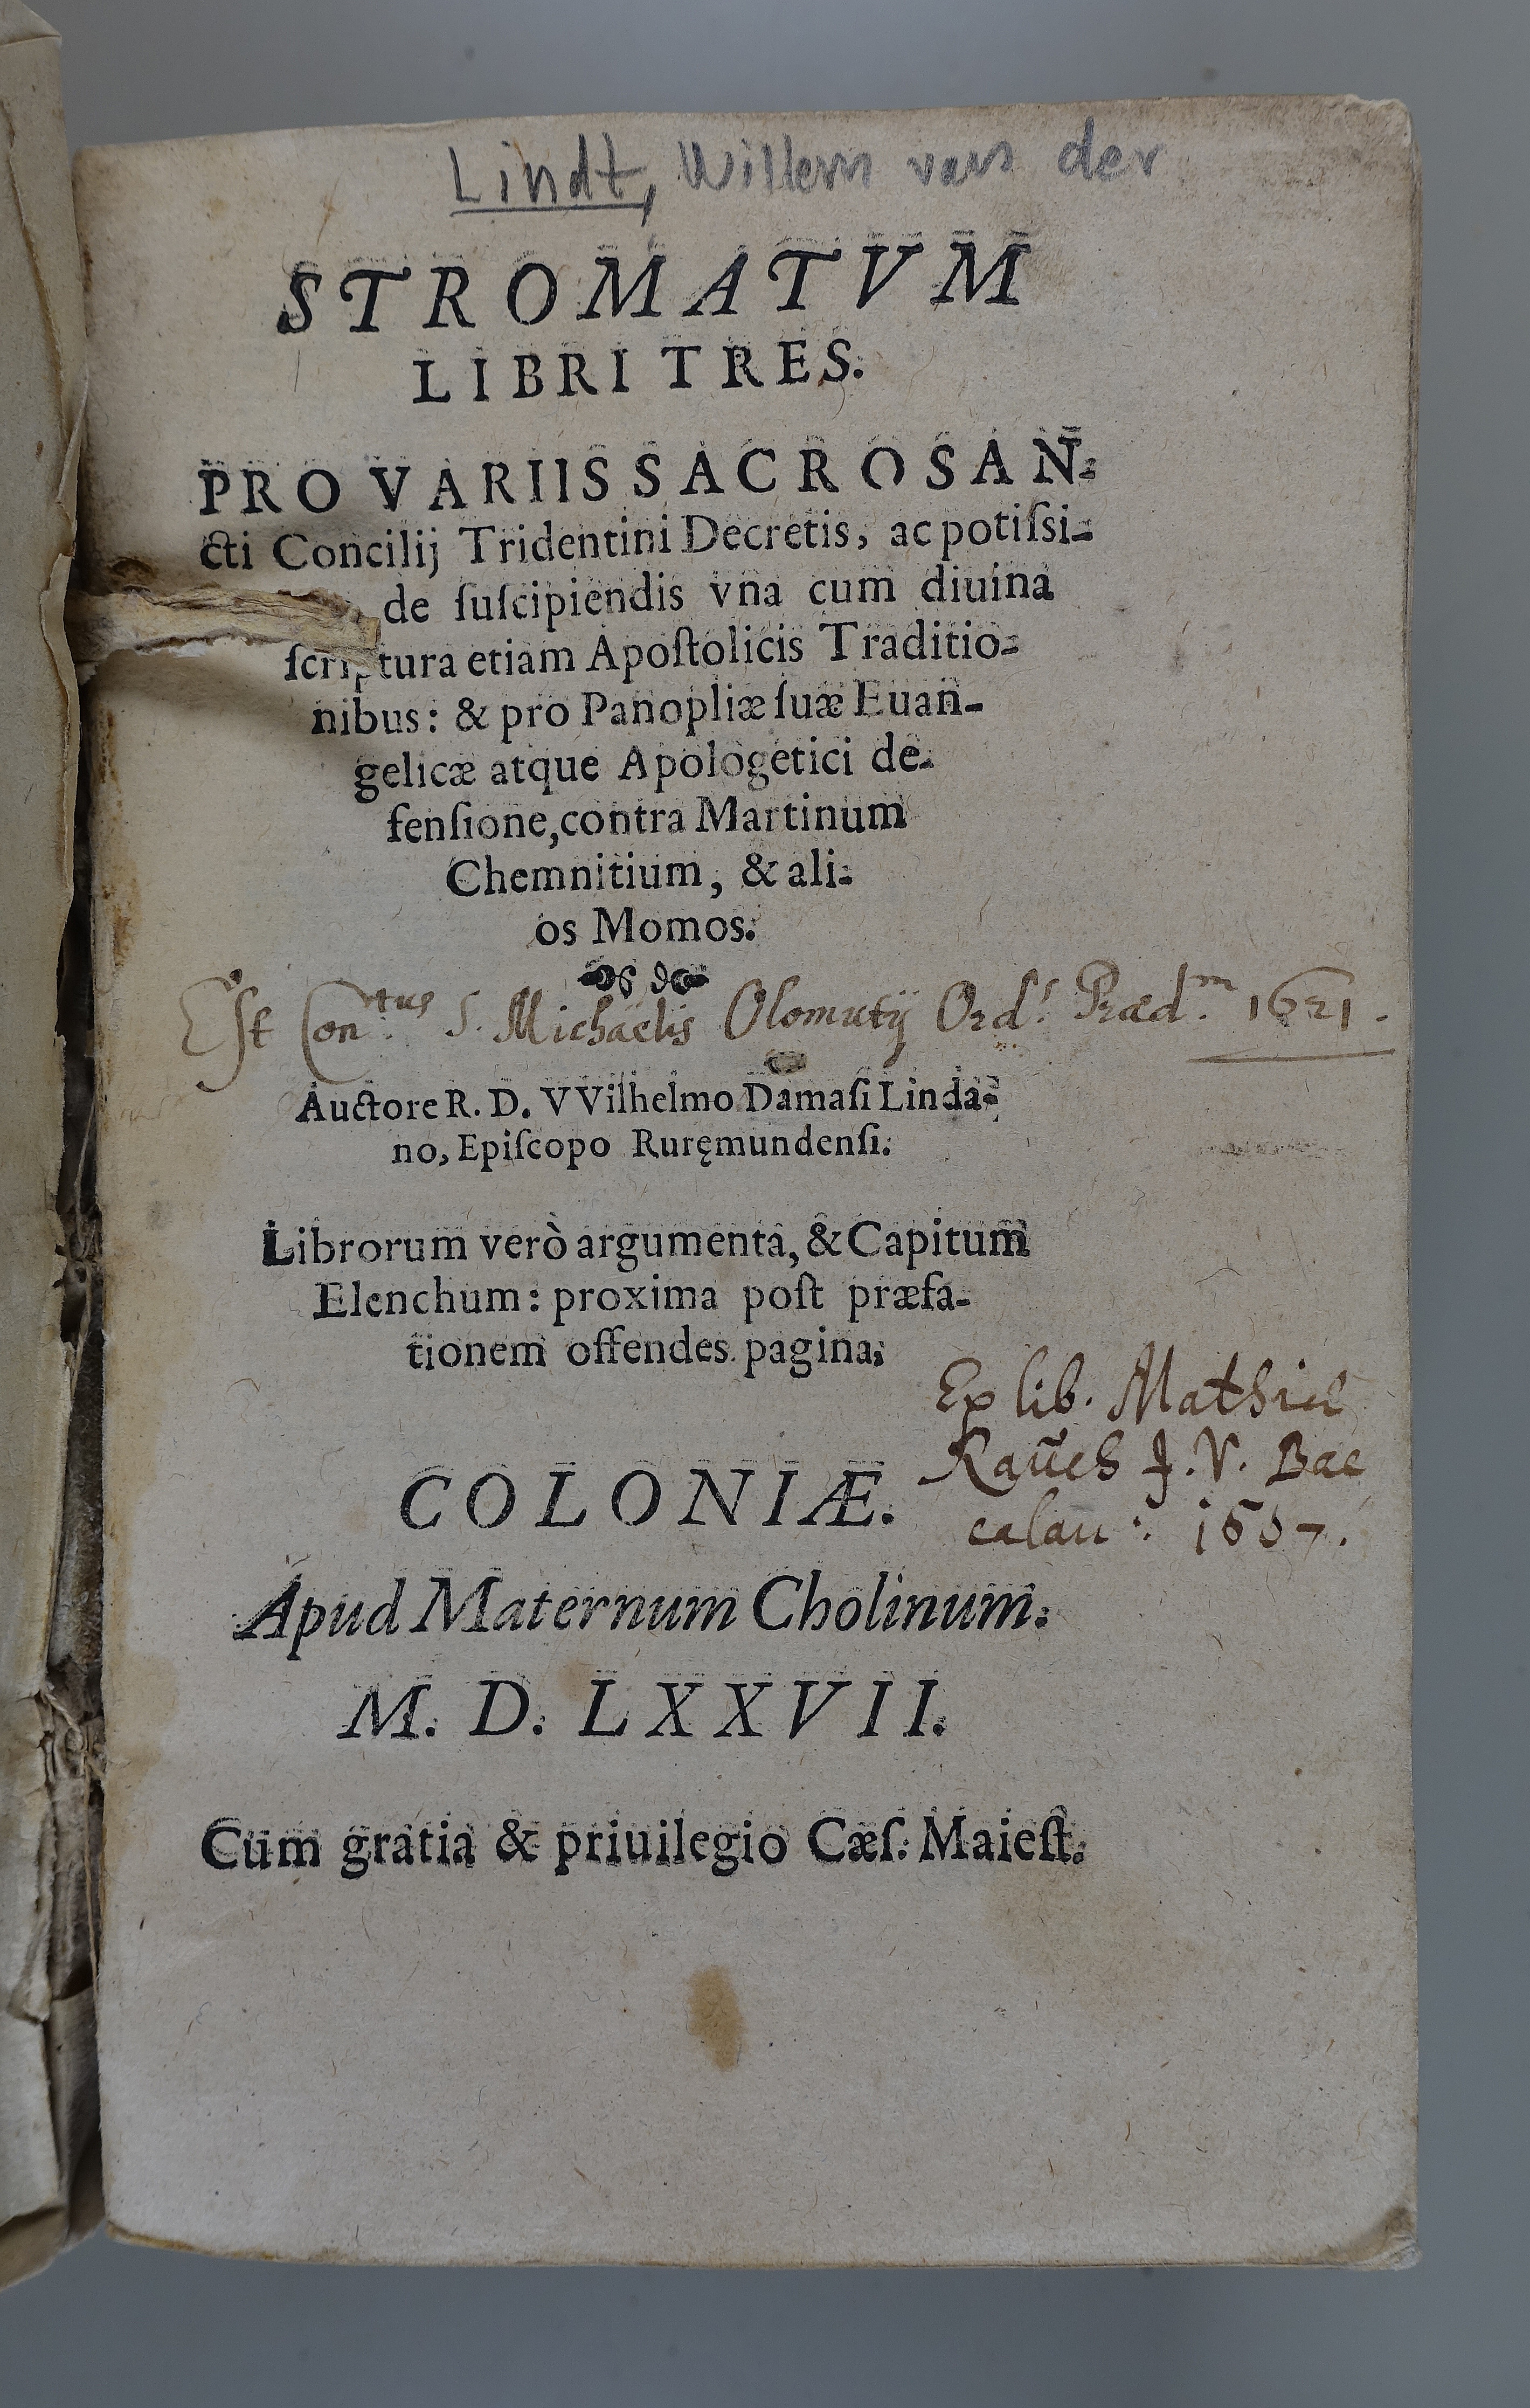 Lindt, Willem van der
STROMATVM
LIBRI TRES.
PRO VARIIS SACROSAN-
cti Concilij Tridentini Decretis, ac potiſsi-
de ſuſcipiendis vna cum diuina
ſcriptura etiam Apoſtolicis Traditio-
nibus: & pro Panopliæ ſuæ Euan-
gelicæ atque Apologetici de-
fenſione, contra Martinum
Chemnitium, & ali-
os Momos.
Eſt Con.tus S. Michaelis Olomutij Ord.s Præd.m
Auctore R. D. VVilhelmo Damaſi Linda-
no, Epiſcopo Ruręmundenſi.
Librorum verò argumenta, & Capitum
Elenchum: proxima poſt præfa-
tionem offendes pagina.
Ex lib. Mathiæ
Rauch J. V. Bac
calau:
COLONIÆ.
Apud Maternum Cholinum.
M. D. LXXVII.
Cum gratia & priuilegio Cæſ. Maieſt.